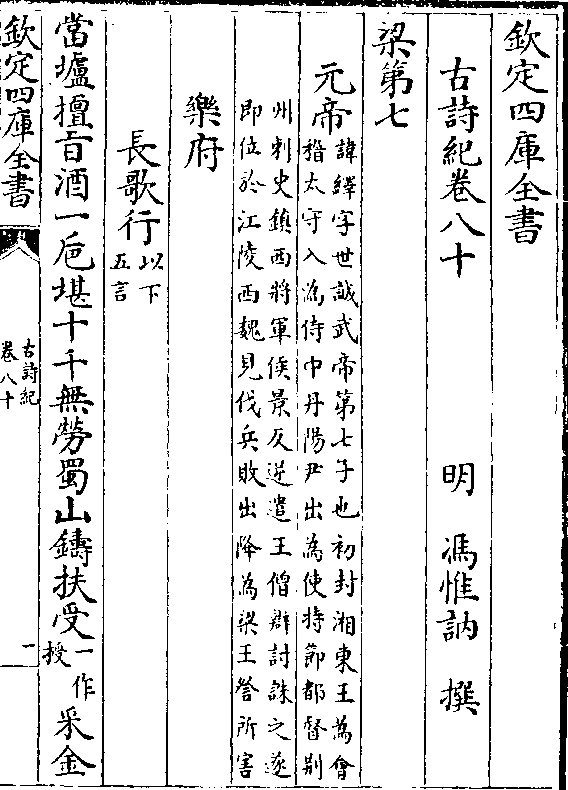 欽定四庫全書
古詩紀卷八十
明 馮惟訥 撰
梁第七
元帝諱繹字世誠武帝第七子也初封湘東王為會
稽太守入為侍中丹陽尹出為使持節都督荆
州刺史鎮西將軍侯景反逆遣王僧辯討誅之遂
即位於江陵西魏見伐兵敗出降為梁王詧所害
樂府
長歌行以下
五言
當壚擅旨酒一巵堪十千無勞蜀山鑄扶受一作
授采金
欽定四庫全書
古詩紀
卷八十
一